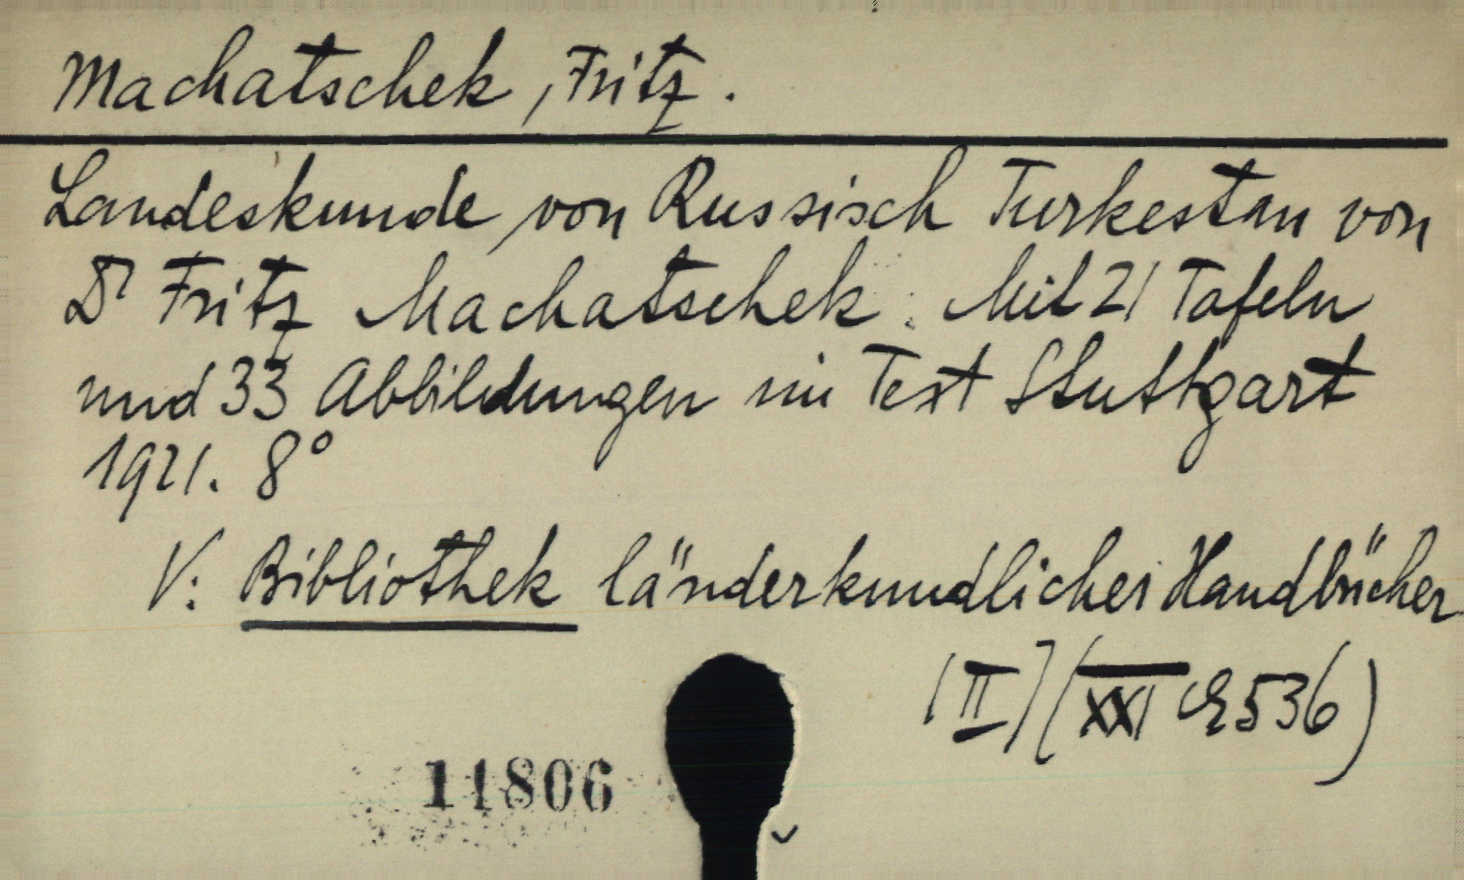 Machatschek, Fritz.
Landeskunde von Russisch Turkestan von
Dr Fritz Machatschek. Mit 21 Tafeln
und 33 Abbildungen im Text Stuttgart
1921. 8°
V: Bibliothek länderkundlicher Handbücher
[II] (XXI 536)
11806